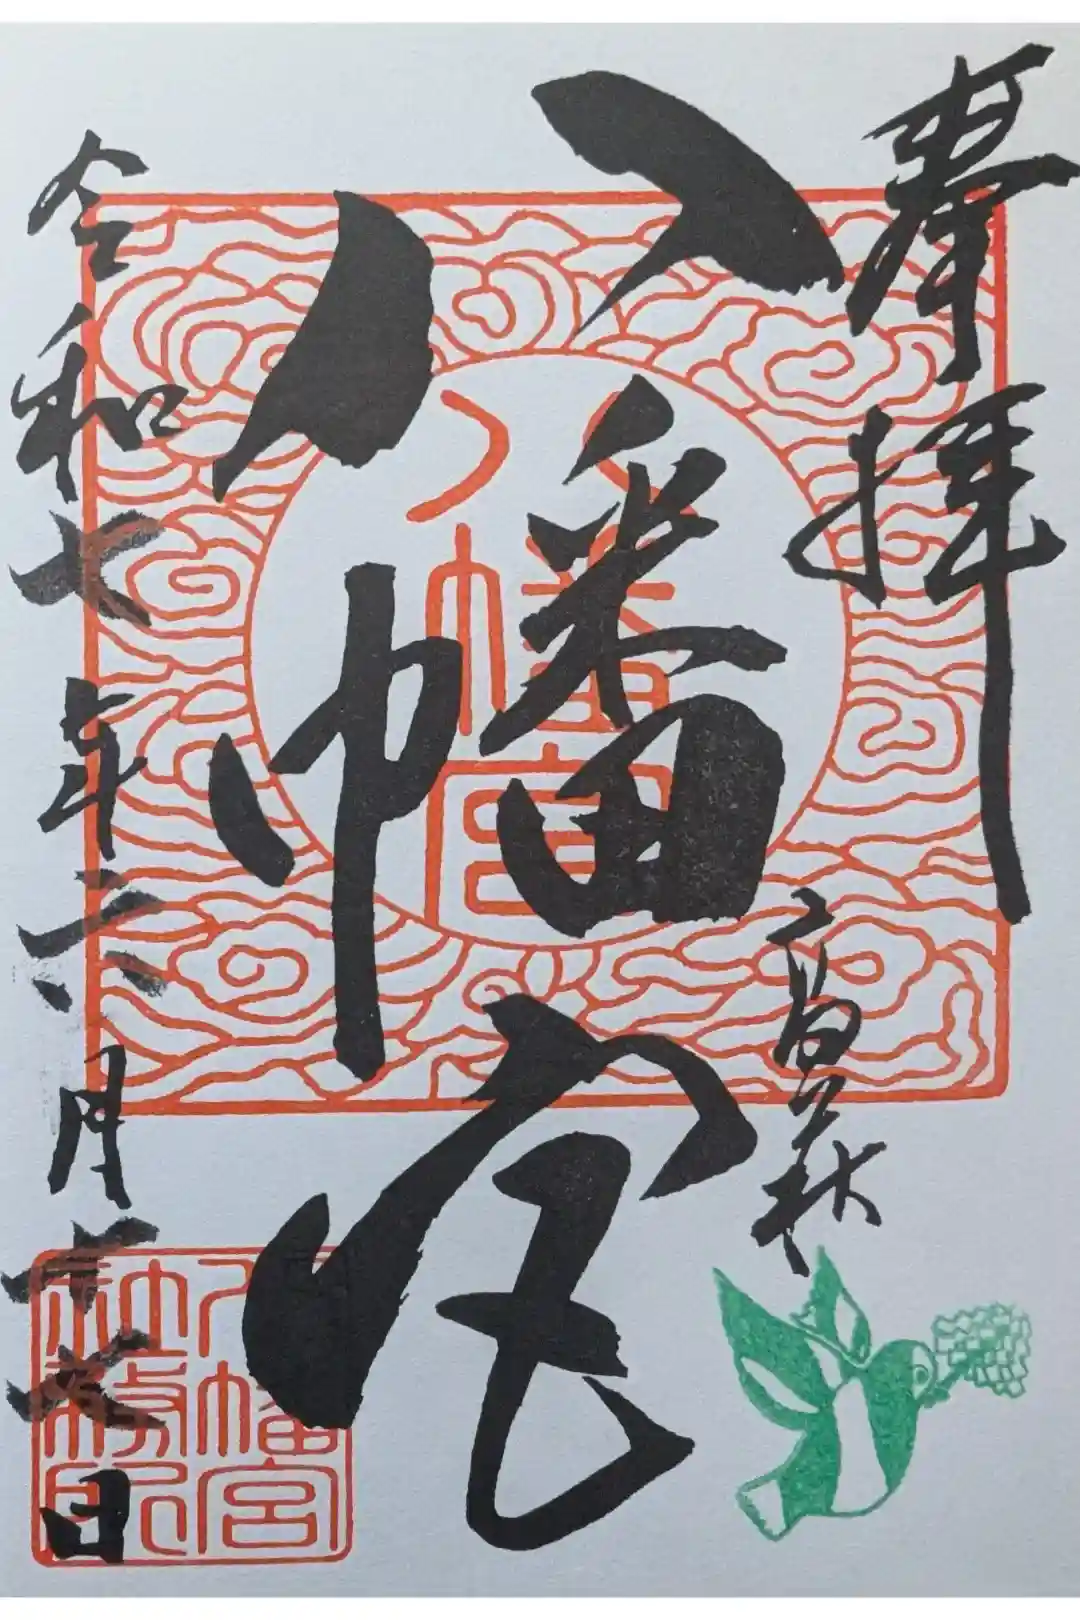 奉拝
高萩
八幡宮
八幡宮
令和七年六月十日
八幡宮
社務所